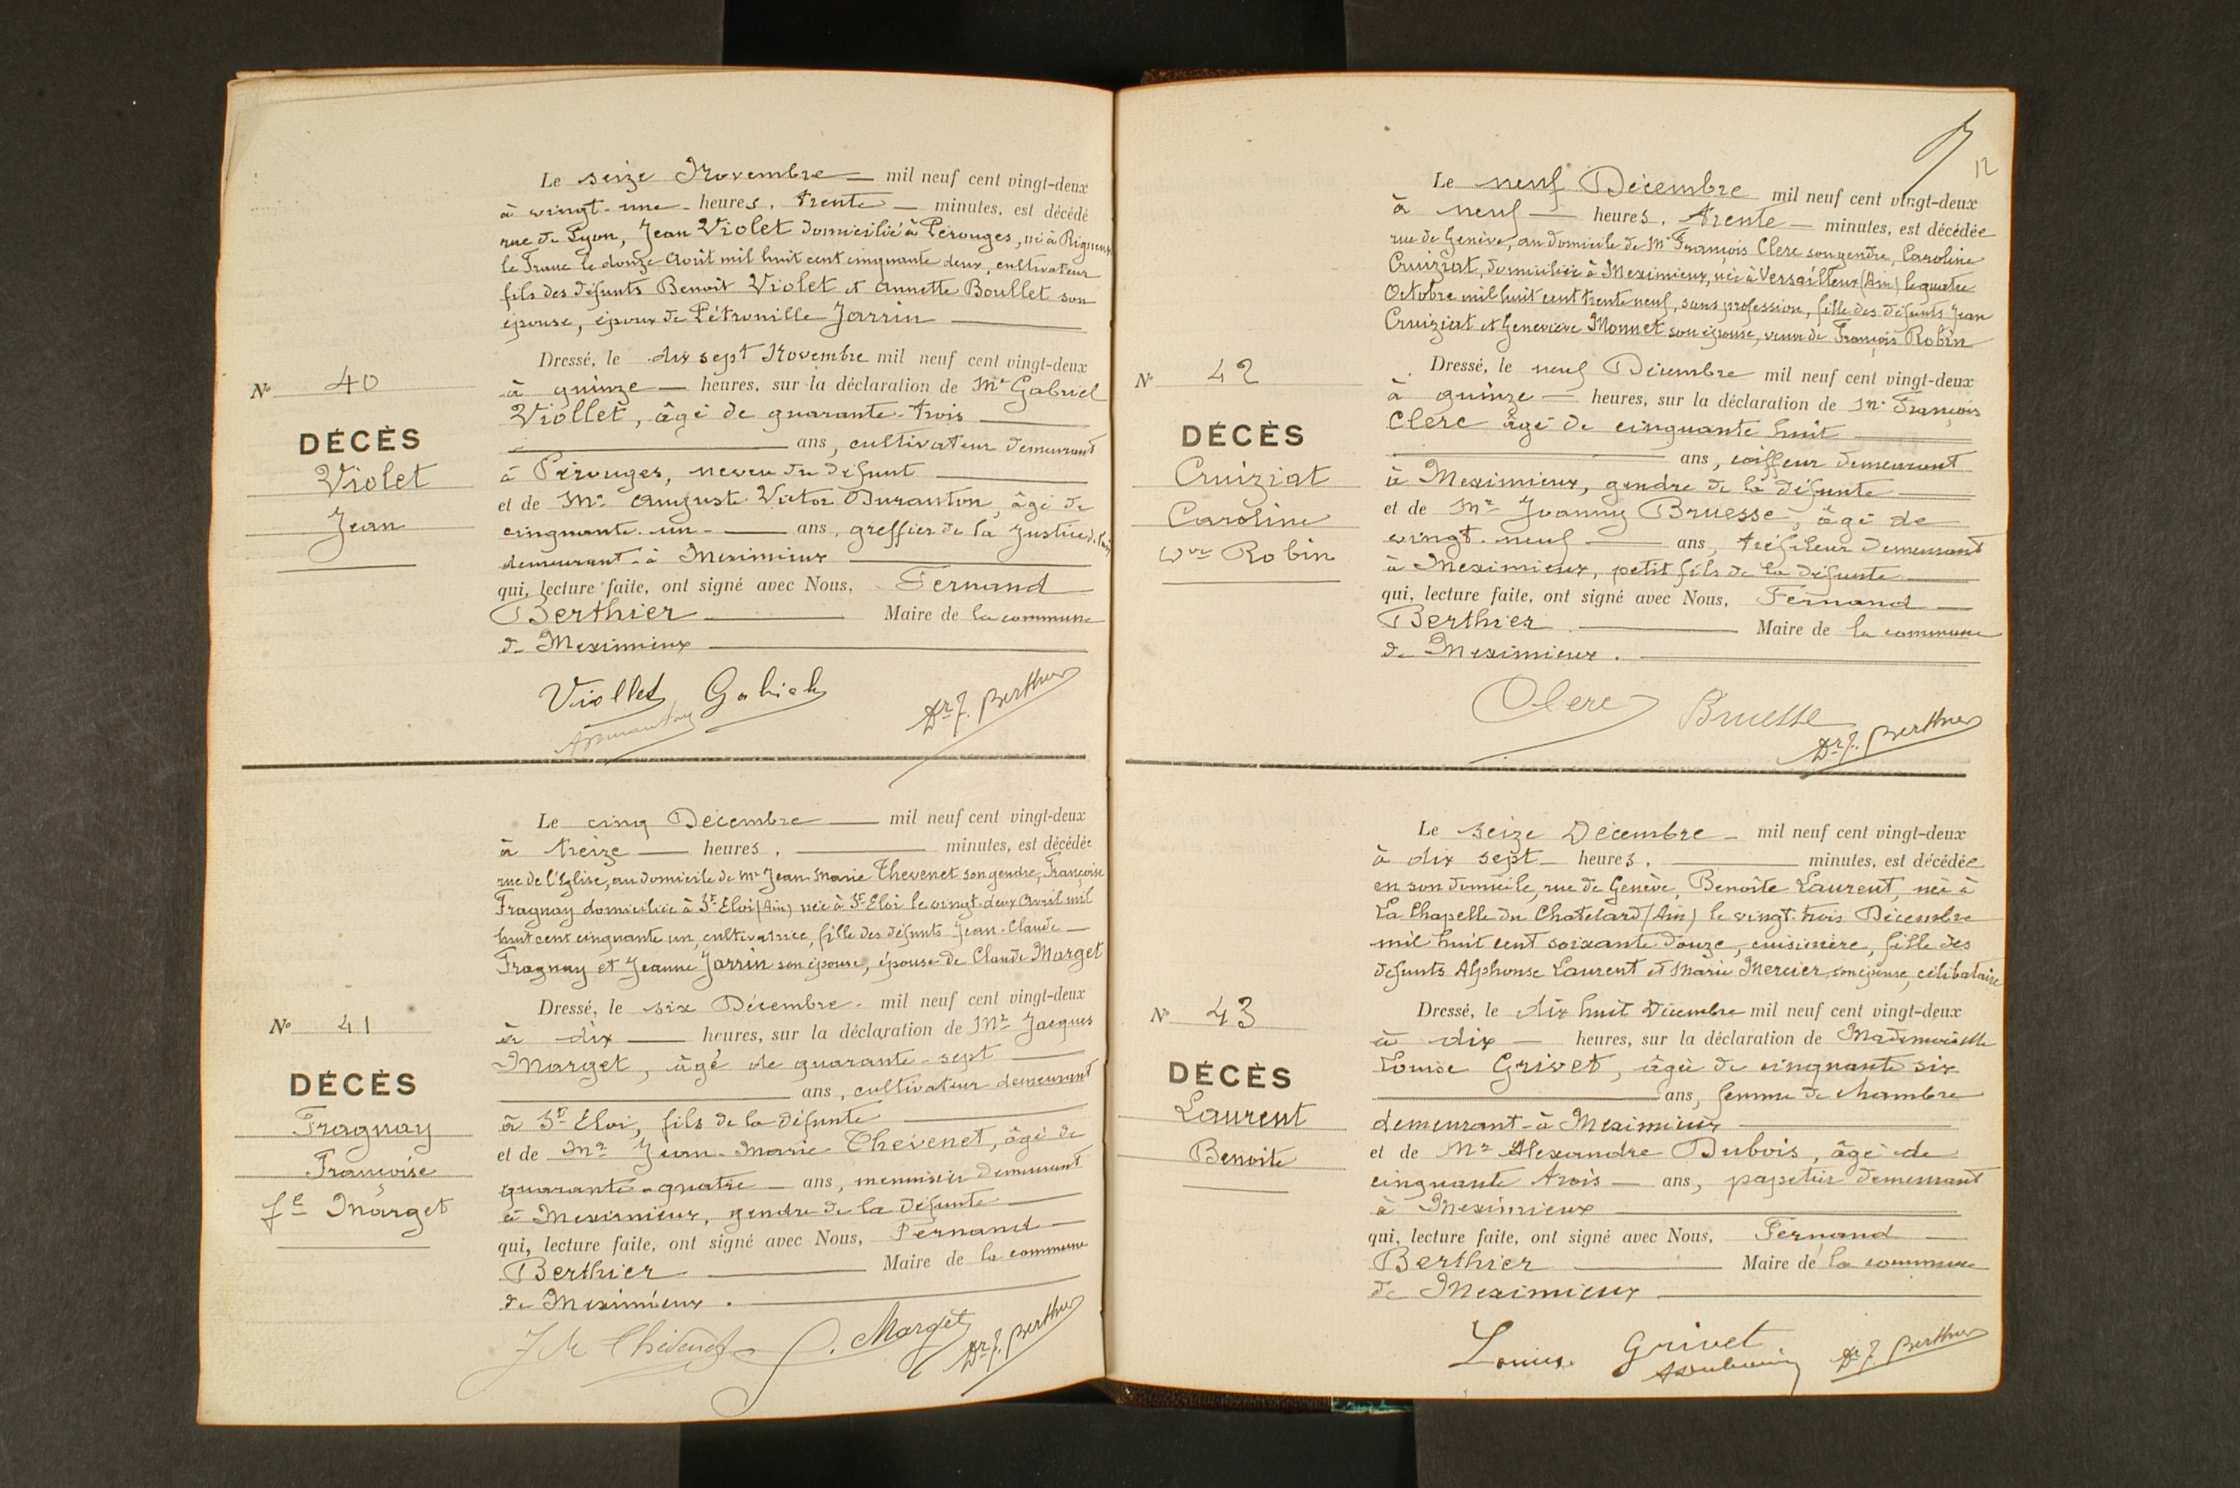 Le seize Novembre mil neuf cent vingt-deux
à vingt-une heures, trente minutes, est décédé
rue de Lyon, Jean Violet domicilié à Pérouges, né à Rigneux
le Franc le douze Août mil huit cent cinquante deux, cultivateur
fils des défunts Benoit Violet et Annette Boullet son
épouse, époux de Pétronille Jarrin
Dressé, le dix sept Novembre mil neuf cent vingt-deux
à quinze heures, sur la déclaration de Mr Gabriel
Viollet, âgé de quarante-trois
ans, cultivateur demeurant
à Pérouges, neveu du défunt
et de Mr Auguste Victor Duranton, âgé de
cinquante-un ans, greffier de la Justice d. Paix
demeurant à Meximieux
qui, lecture faite, ont signé avec Nous, Fernand
Berthier Maire de la commune
de Meximieux
N° 40
DÉCÈS
Violet
Jean
Viollet Gabriel
ADuranton
Dr F. Berthier
Le cinq Décembre mil neuf cent vingt-deux
à treize heures, minutes, est décédée
rue de l'Eglise, au domicile de Mr Jean Marie Thevenet son gendre, Françoise
Fragnay domiciliée à St Eloi (Ain) née à St Eloi le vingt-deux Avril mil
huit cent cinquante un, cultivatrice, fille des défunts Jean-Claude
Fragnay et Jeanne Jarrin son épouse, épouse de Claude Marget
Dressé, le six Décembre mil neuf cent vingt-deux
à dix heures, sur la déclaration de Mr Jacques
Marget, âgé de quarante-sept
ans, cultivateur demeurant
à St Eloi, fils de la défunte
et de Mr Jean-Marie Thevenet, âgé de
quarante-quatre ans, menuisier demeurant
à Meximieux, gendre de la défunte
qui, lecture faite, ont signé avec Nous, Fernand
Berthier Maire de la commune
de Meximieux.
N° 41
DÉCÈS
Fragnay
Françoise
fe Marget
JM Thévenet J. Marget Dr F. Berthier
12
Le neuf Décembre mil neuf cent vingt-deux
à neuf heures, trente minutes, est décédée
rue de Genève, au domicile de Mr François Clerc son gendre, Caroline
Cruiziat, domiciliée à Meximieux, née à Versailleux (Ain) le quatre
Octobre mil huit cent trente neuf, sans profession, fille des défunts Jean
Cruiziat et Geneviève Monnet son épouse, veuve de François Robin
Dressé, le neuf Décembre mil neuf cent vingt-deux
à quinze heures, sur la déclaration de Mr François
Clerc âgé de cinquante huit
ans, coiffeur demeurant
à Meximieux, gendre de la défunte
et de Mr Joanny Bruesse, âgé de
vingt-neuf ans, tréfileur demeurant
à Meximieux, petit fils de la défunte
qui, lecture faite, ont signé avec Nous, Fernand
Berthier Maire de la commune
de Meximieux.
N° 42
DÉCÈS
Cruiziat
Caroline
vve Robin
Clerc Bruesse Dr F. Berthier
Le seize Décembre mil neuf cent vingt-deux
à dix sept heures, minutes, est décédée
en son domicile, rue de Genève, Benoîte Laurent, née à
La Chapelle du Chatelard (Ain) le vingt-trois Décembre
mil huit cent soixante douze, cuisinière, fille des
défunts Alphonse Laurent et Marie Mercier son épouse, célibataire
Dressé, le dix huit Décembre mil neuf cent vingt-deux
à dix heures, sur la déclaration de Mademoiselle
Louise Grivet, âgée de cinquante six
ans, femme de chambre
demeurant à Meximieux
et de Mr Alexandre Dubois, âgé de
cinquante trois ans, papetier demeurant
à Meximieux
qui, lecture faite, ont signé avec Nous, Fernand
Berthier Maire de la commune
de Meximieux
N° 43
DÉCÈS
Laurent
Benoite
Louise Grivet Dr F. Berthier